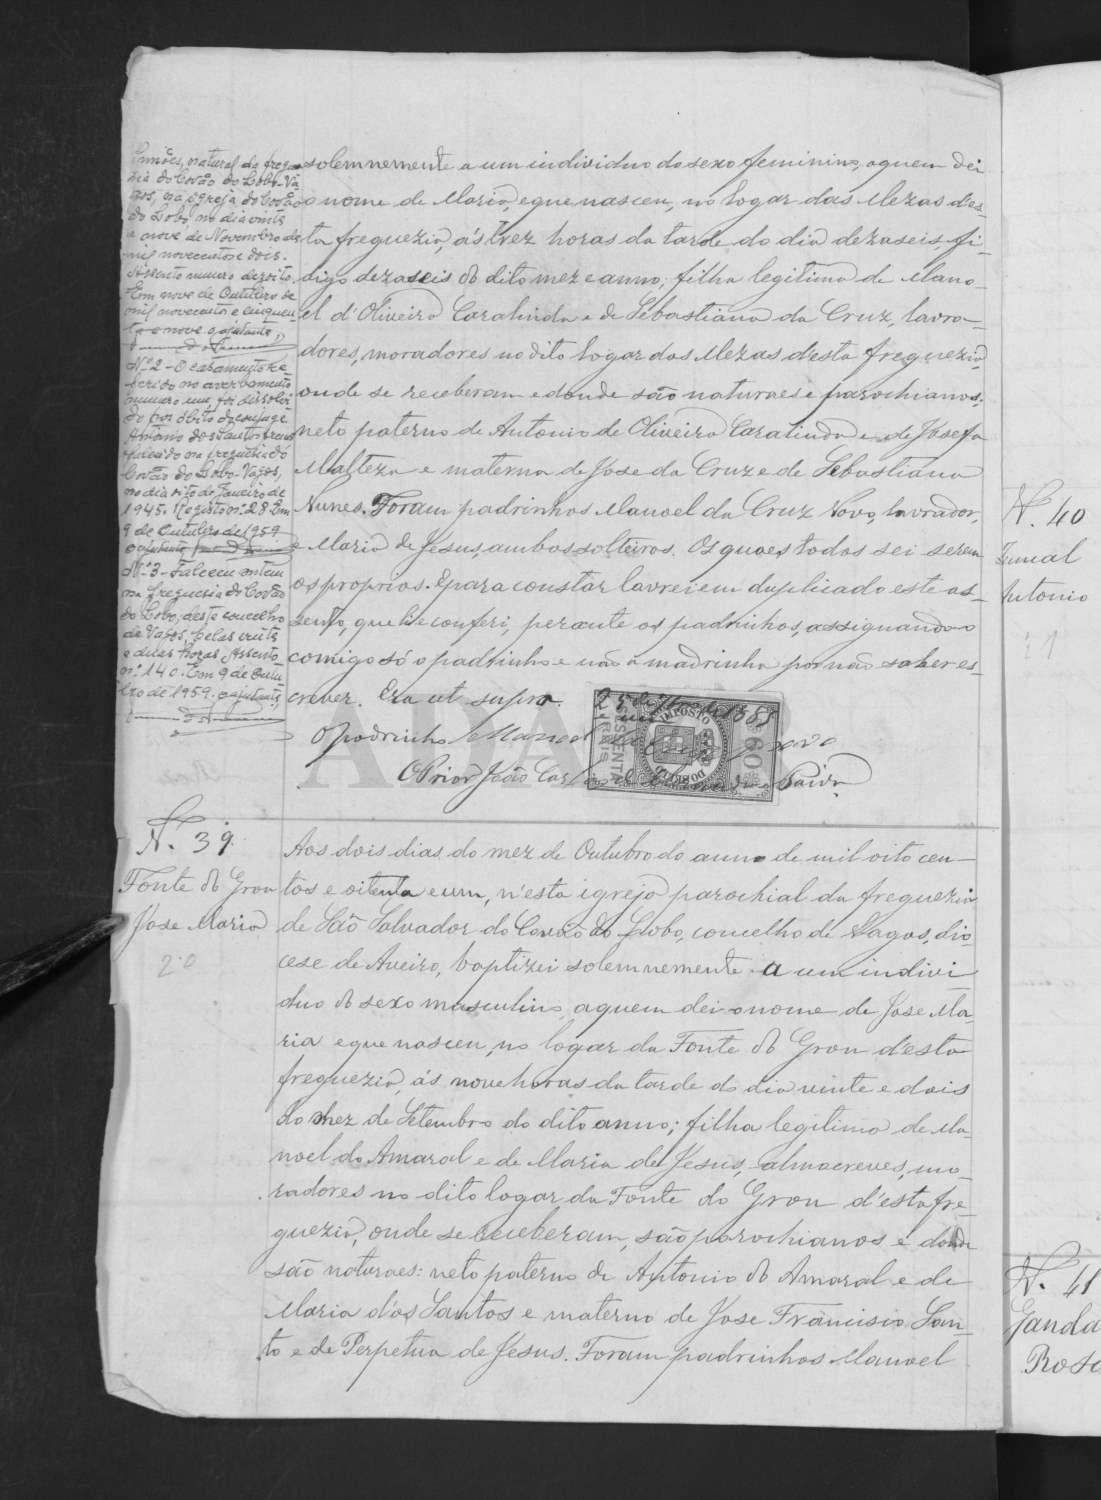 Simões, natural da fregue-
zia do Covão do Lobo-Va-
gos, na igreja do Covão
do Lobo, no dia vinte
e nove de Novembro de
mil novecentos e dois.
Assento numero dezoito.
Em nove de Outubro de
mil novecentos e cinquen-
ta e nove. O ajudante,
Nº 2 - O casamento re-
ferido no averbamento
numero um, foi dissolvi-
do por óbito do conjuge
António dos Santos
falecido na freguesia do
Covão do Lobo-Vagos,
no dia oito de Janeiro de
1945. Registo nº 28. Em
9 de Outubro de 1959.
O ajudante,
Nº 3 - Faleceu ontem
na freguesia do Covão
do Lobo, deste concelho
de Vagos, pelas vinte
e duas horas. Assento
nº 140. Em 9 de Outu-
bro de 1959. O ajudante,
solemnemente a um individuo do sexo feminino, a quem dei
o nome de Maria, e que nasceu, no logar das Mezas des-
ta freguezia, ás trez horas da tarde do dia dezaseis, ji
digo dezaseis do dito mez e anno; filha legitima de Mano-
el d'Oliveira Caralinda e de Sebastiana da Cruz, lavra-
dores, moradores no dito logar das Mezas d'esta freguezia,
onde se receberam e d'onde são naturaes e parochianos;
neto paterno de Antonio de Oliveira Caralinda e de Josefa
Malteza e materna de Jose da Cruz e de Sebastiana
Nunes. Foram padrinhos Manoel da Cruz Novo, lavrador,
e Maria de Jesus, ambos solteiros. Os quaes todos sei serem
os proprios. E para constar lavrei em duplicado este as-
sento, que li e conferi, perante os padrinhos, assignando
comigo só o padrinho e não a madrinha por não saber es-
crever. Era ut supra.
IMPOSTO DO SELLO
SESSENTA REIS
60
O padrinho Manoel da Cruz Novo
O Prior João Car
Paiva
ADAVR
Nº 39
Fonte do Grou
Jose Maria
20
Aos dois dias do mez de Outubro do anno de mil oito cen-
tos e oitenta e um, n'esta igreja parochial da freguezia
de São Salvador do Covão do Lobo, concelho de Vagos, dio-
cese de Aveiro, baptizei solemnemente a um indivi
duo do sexo masculino, a quem dei o nome de Jose Ma-
ria e que nasceu, no logar da Fonte do Grou d'esta
freguezia, ás nove horas da tarde do dia vinte e dois
do mez de Setembro do dito anno; filho legitimo de Ma-
noel do Amaral e de Maria de Jesus, almocreves, mo-
radores no dito logar da Fonte do Grou d'esta fre-
guezia, onde se receberam, são parochianos e donde
são naturaes: neto paterno de Antonio do Amaral e de
Maria dos Santos e materno de Jose Francisco San-
to e de Perpetua de Jesus. Foram padrinhos Manoel
Nº 40
Antonio
Nº 41
Ganda
Rosa